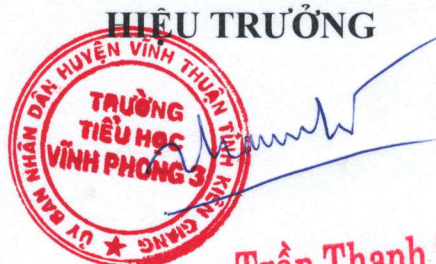 HIỆU TRƯỞNG
ỦY BAN NHÂN DÂN HUYỆN VĨNH THUẬN TỈNH KIÊN GIANG
TRƯỜNG
TIỂU HỌC
VĨNH PHONG 3
Trần Thanh